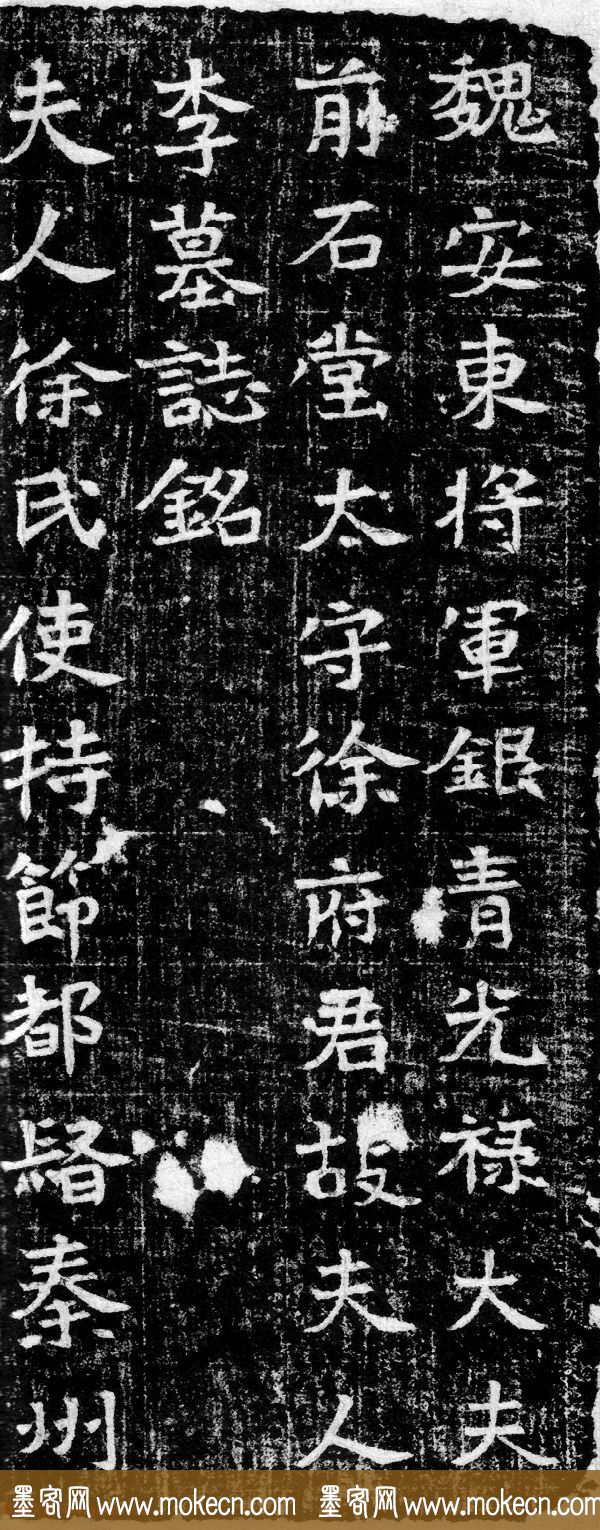 魏安東将軍銀青光禄大夫
前石堂太守徐府君故夫人
李墓誌銘
夫人徐氏使持節都督秦州
墨客网 www.mokecn.com 墨客网 www.mokecn.com